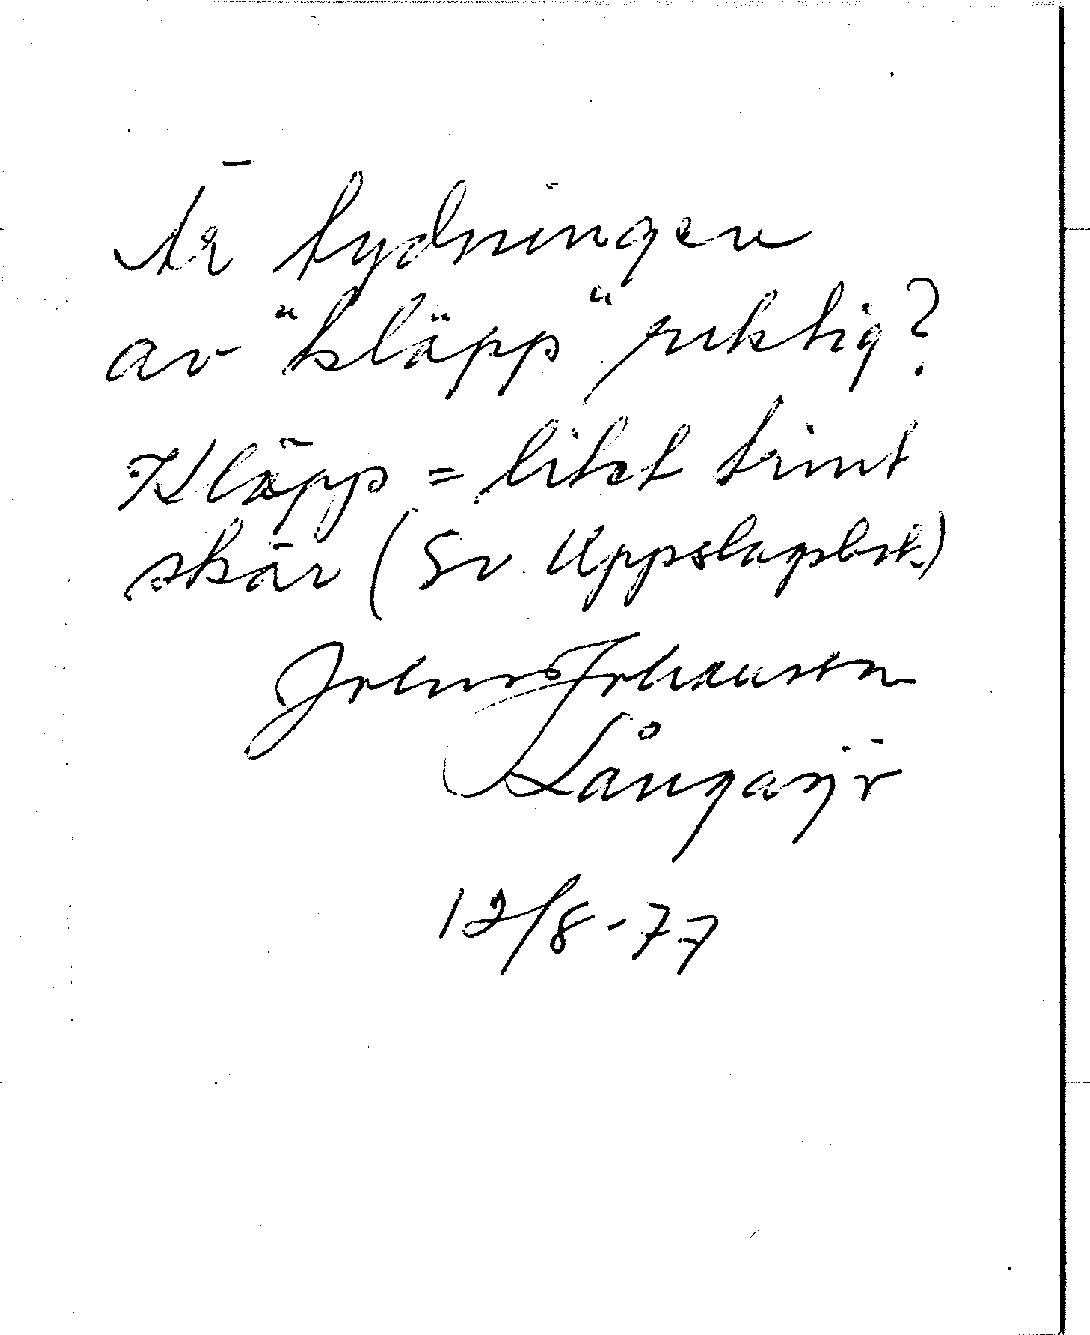 Är tydningen
av "kläpp" riktig?
Kläpp = litet trint
skär (Sv. Uppslagsbok)
Johns Johansson
Långasjö
12/8-77